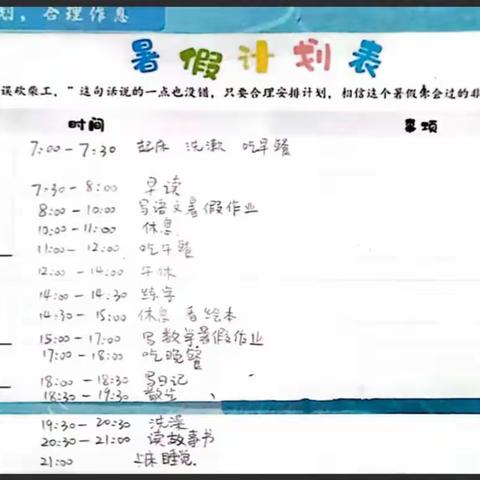 划，合理作息
暑假计划表
误砍柴工，”这句话说的一点也没错，只要合理安排计划，相信这个暑假你会过的非
时间 事项
7:00-7:30 起床 洗漱 吃早餐
7:30-8:00 早读
8:00-10:00 写语文暑假作业
10:00-11:00 休息
11:00-12:00 吃午餐
12:00-14:00 午休
14:00-14:30 练字
14:30-15:00 休息 看绘本
15:00-17:00 写数学暑假作业
17:00-18:00 吃晚餐
18:00-18:30 写日记
18:30-19:30 散步
19:30-20:30 洗澡
20:30-21:00 读故事书
21:00 上床睡觉